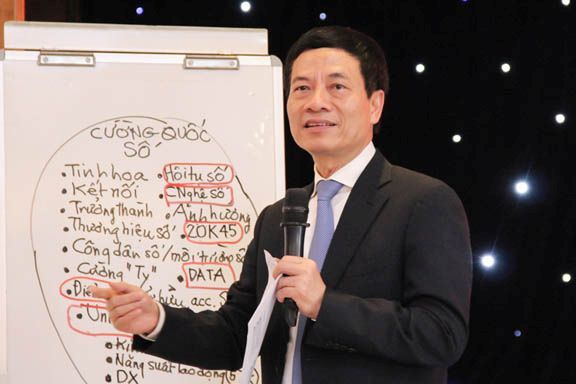 CƯỜNG QUỐC
SỐ
• Tinh hoa • Hội tụ số
• Kết nối • CNghệ số
• Trưởng thành • Ảnh hưởng
• Thương hiệu số • 20K45
• Công dân số/môi trường số
• Cường "Tỷ" • DATA
• acc.
•
•
• Năng suất lao động
• DX